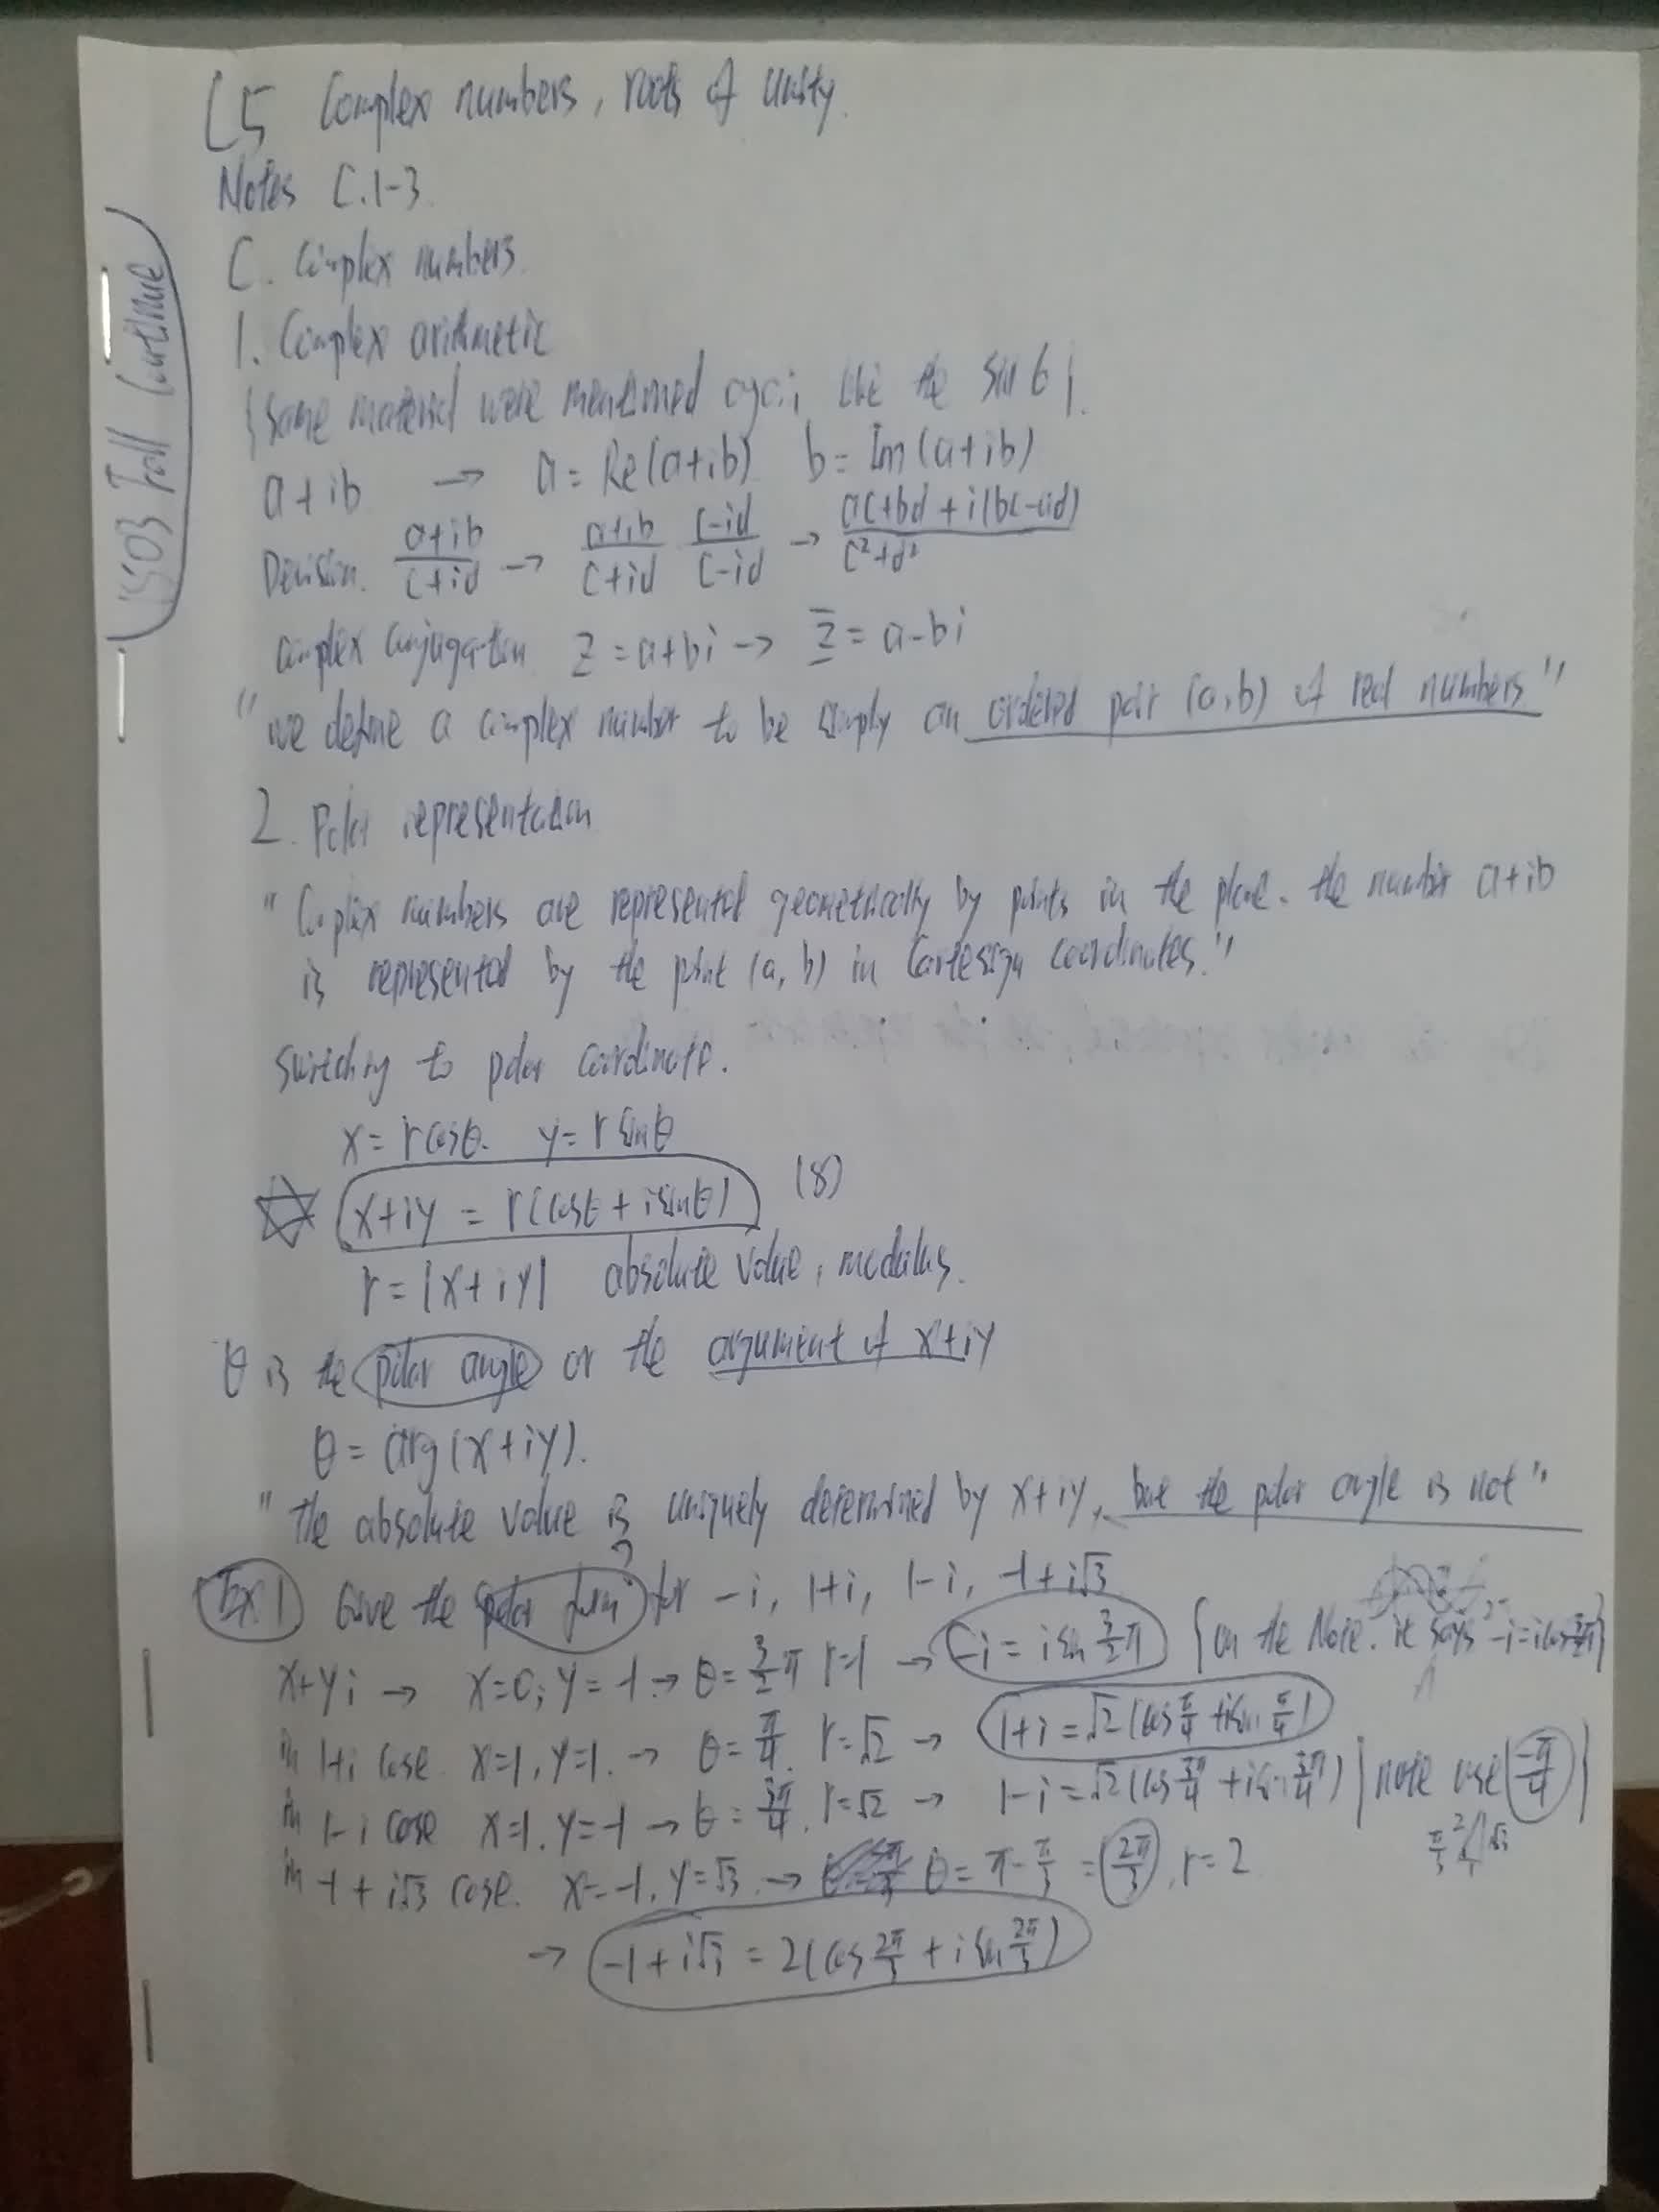 L5 Complex numbers, roots of unity.
Notes C.1-3.
C. Complex numbers.
1. Complex arithmetic
{Some material were mentioned like the }.
a+ib → a = Re(a+ib) b = Im(a+ib)
Division. (a+ib)/(c+id) → (a+ib)/(c+id) (c-id)/(c-id) → (ac+bd + i(bc-ad))/(c²+d²)
Complex conjugation z = a+bi → z̄ = a-bi
"we define a complex number to be simply an ordered pair (a,b) of real numbers"
2. Polar representation
"Complex numbers are represented geometrically by points in the plane. the number a+ib
is represented by the point (a, b) in Cartesign coordinates."
Switching to polar coordinate.
x = r cosθ. y = r sinθ
☆ x+iy = r(cosθ + i sinθ) (8)
r = |x+iy| absolute value, modulus.
θ is the polar angle or the argument of x+iy
θ = arg(x+iy).
"the absolute value is uniquely determined by x+iy, but the polar angle is not"
Ex 1 Give the polar form for -i, 1+i, 1-i, -1+i√3
x+yi → x=0, y=-1 → θ = 3/2 π r=1 → -i = i sin 3/2 π {on the Note. it says -i = i
in 1+i case x=1, y=1. → θ = π/4. r=√2 → 1+i = √2 (cos π/4 + i sin π/4)
in 1-i case x=1. y=-1 → θ = 3π/4. r=√2 → 1-i = √2 (cos 3π/4 + i sin 3π/4) {note use -π/4}
in -1+i√3 case. x=-1, y=√3. → θ = π - π/3 = 2π/3, r=2
π/3 2 1 √3
→ -1+i√3 = 2(cos 2π/3 + i sin 2π/3)
1803 Fall Continue